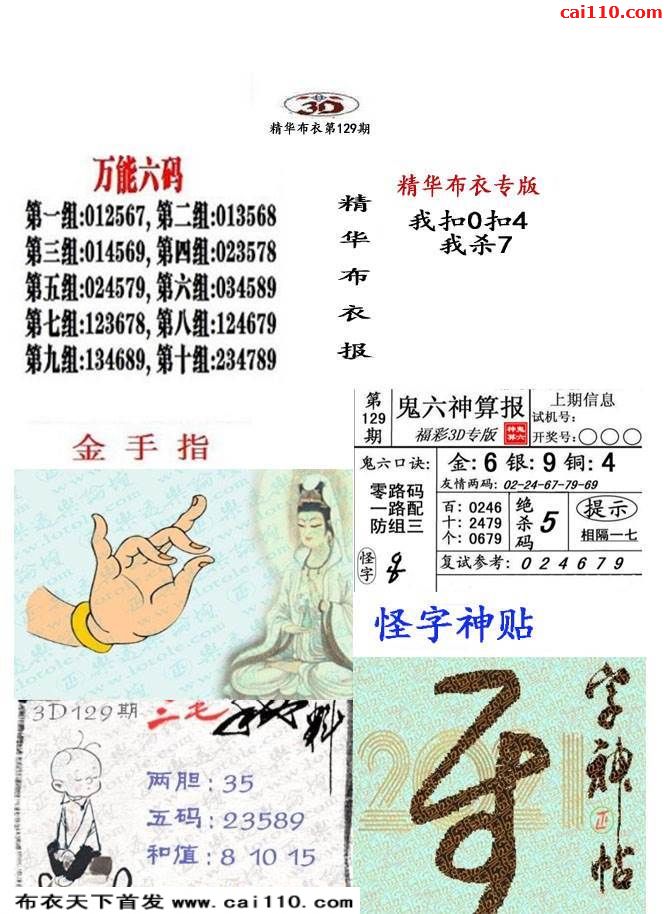 cai110.com
3D
精华布衣第129期
万能六码
第一组:012567, 第二组:013568
第三组:014569, 第四组:023578
第五组:024579, 第六组:034589
第七组:123678, 第八组:124679
第九组:134689, 第十组:234789
精华布衣报
精华布衣专版
我扣0扣4
我杀7
第129期
鬼六神算报
福彩3D专版
上期信息
试机号:
开奖号:○○○
鬼六口诀:
零路码
一路配
防组三
怪字
金: 6 银: 9 铜: 4
友情两码: 02-24-67-79-69
百: 0246
十: 2479
个: 0679
绝杀码
5
提示
相隔一七
复试参考: 024679
金手指
怪字神贴
3D129期
三毛
料
两胆: 35
五码: 23589
和值: 8 10 15
2021
字神帖
正
布衣天下首发 www.cai110.com